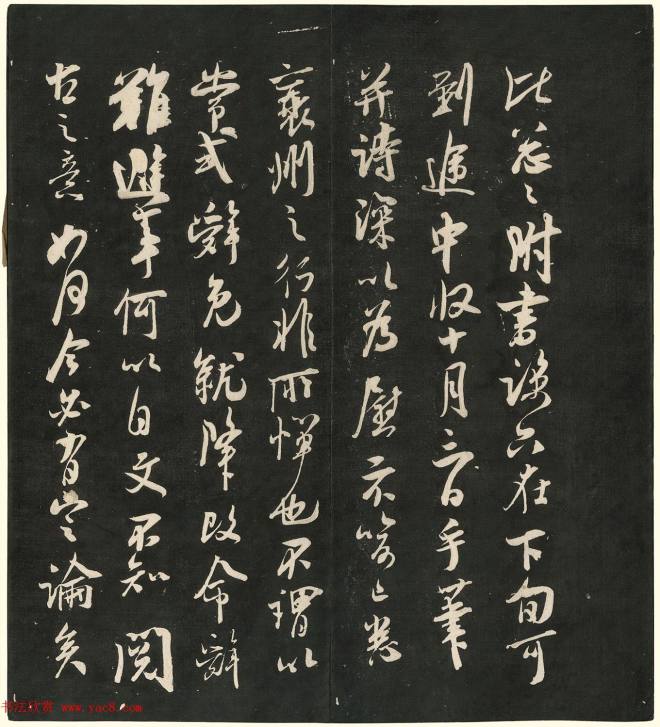 比忽々附書諒只在下旬可
到途中收十月三日手筆
并詩深以為慰示喻已悉
襄州之行非所憚也不謂以
嘗辭免就降改命辭
難避事何以自文不知閱
古之意如何今必有定論矣
书法欣赏 www.yac8.com